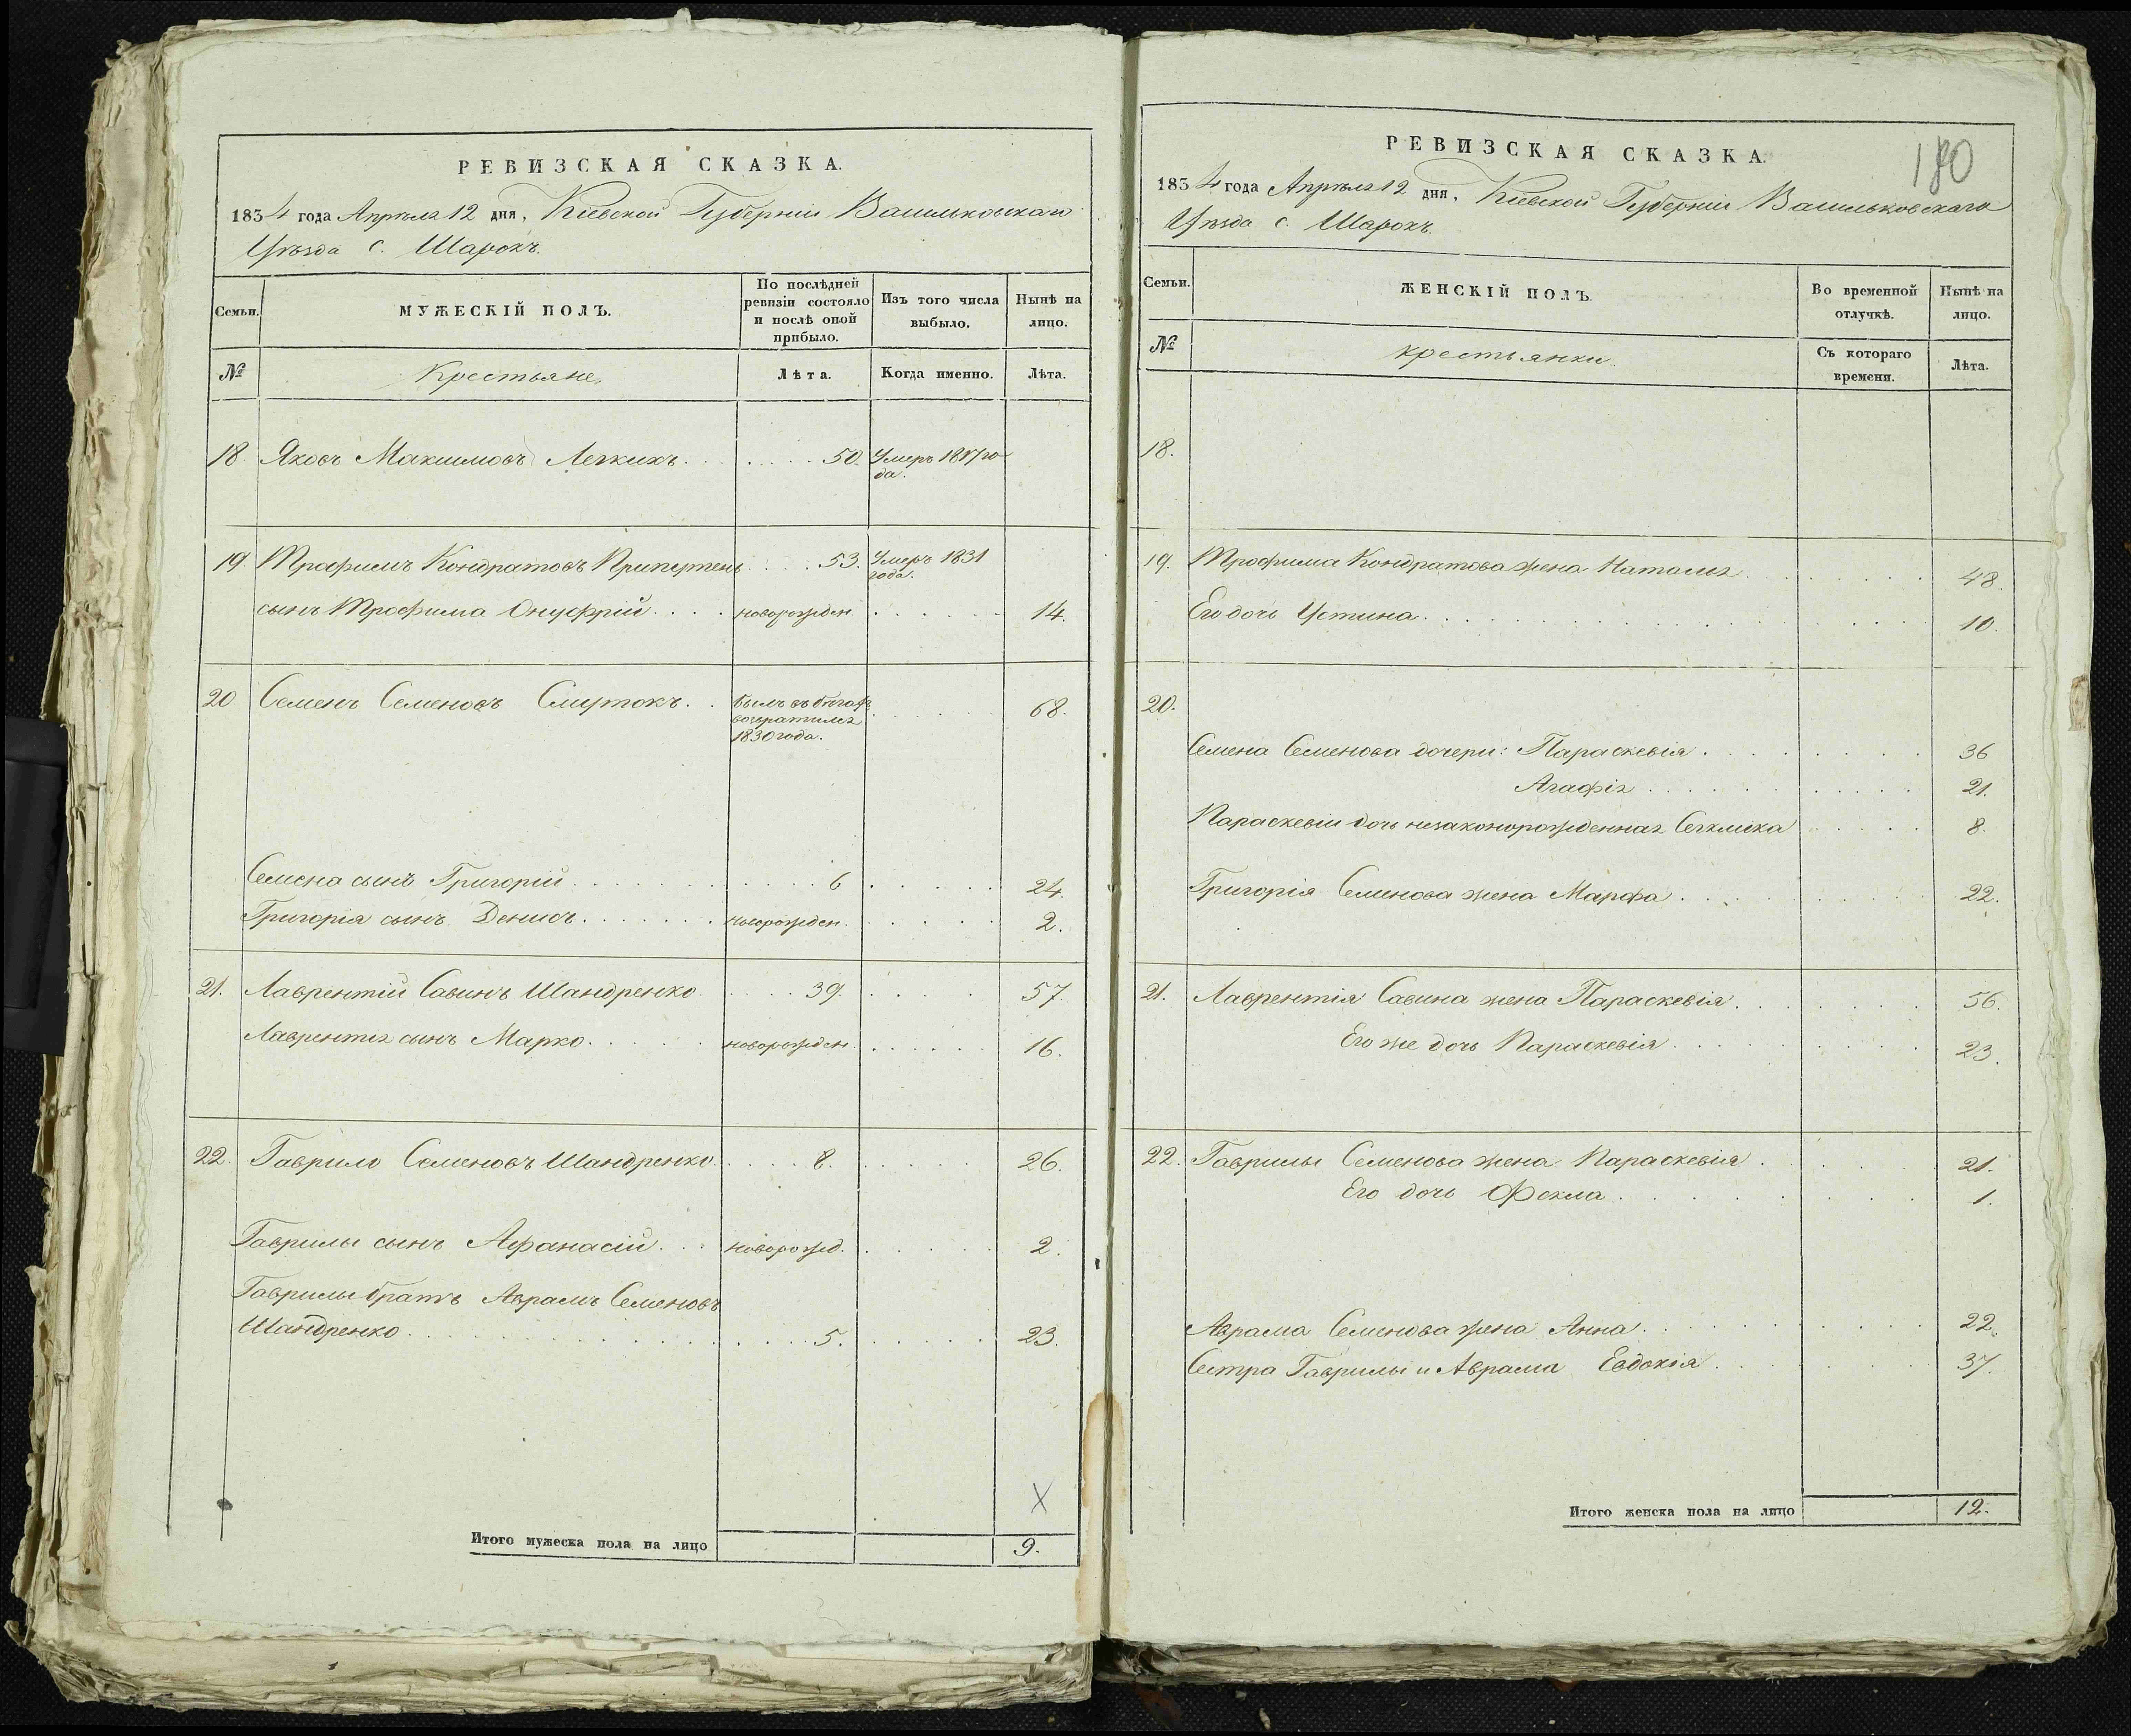 РЕВИЗСКАЯ СКАЗКА.
1834 года Апрѣля 12 дня, Кіевской Губерніи Васильковскаго
Уѣзда с. Шарокъ.
Семьи.
МУЖЕСКІЙ ПОЛЪ.
По послѣдней ревизіи состояло и послѣ оной прибыло.
Изъ того числа выбыло.
Нынѣ на лицо.
№
Крестьяне.
Лѣта.
Когда именно.
Лѣта.
18 Яковъ Максимовъ Легкихъ 50. Умеръ 18 го
да.
19 Трофимъ Кондратовъ Приперпень 53. Умеръ 1831
года.
сынъ Трофима Онуфрій новорожден. 14.
20 Семенъ Семеновъ Смиртокъ былъ въ бѣгах 68.
возвратился
1830 года.
Семена сынъ Григорій 6 24.
Григорія сынъ Денисъ новорожден. 2.
21. Лаврентій Савинъ Шандренко 39. 57.
Лаврентія сынъ Марко новорожден. 16.
22. Гаврило Семеновъ Шандренко 8. 26.
Гаврилы сынъ Афанасій новорожд. 2.
Гаврилы братъ Аврамъ Семеновъ
Шандренко 5. 23.
Х
Итого мужеска пола на лицо 9.
180
РЕВИЗСКАЯ СКАЗКА.
1834 года Апрѣля 12 дня, Кіевской Губерніи Васильковскаго
Уѣзда с. Шарокъ.
Семьи.
ЖЕНСКІЙ ПОЛЪ.
Во временной отлучкѣ.
Нынѣ на лицо.
№
крестьянки
Съ котораго времени.
Лѣта.
18.
19. Трофима Кондратова жена Наталья 48.
Его дочь Устина 10.
20.
Семена Семенова дочери: Параскевія 36
Агафія 21.
Параскевіи дочь незаконорожденная 8.
Григорія Семенова жена Марфа 22.
21. Лаврентія Савина жена Параскевія 56.
Его же дочь Параскевія 23.
22. Гаврилы Семенова жена Параскевія 21.
Его дочь Фекла 1.
Аврама Семенова жена Анна 22.
Сестра Гаврилы и Аврама Евдокія 37.
Итого женска пола на лицо 12.